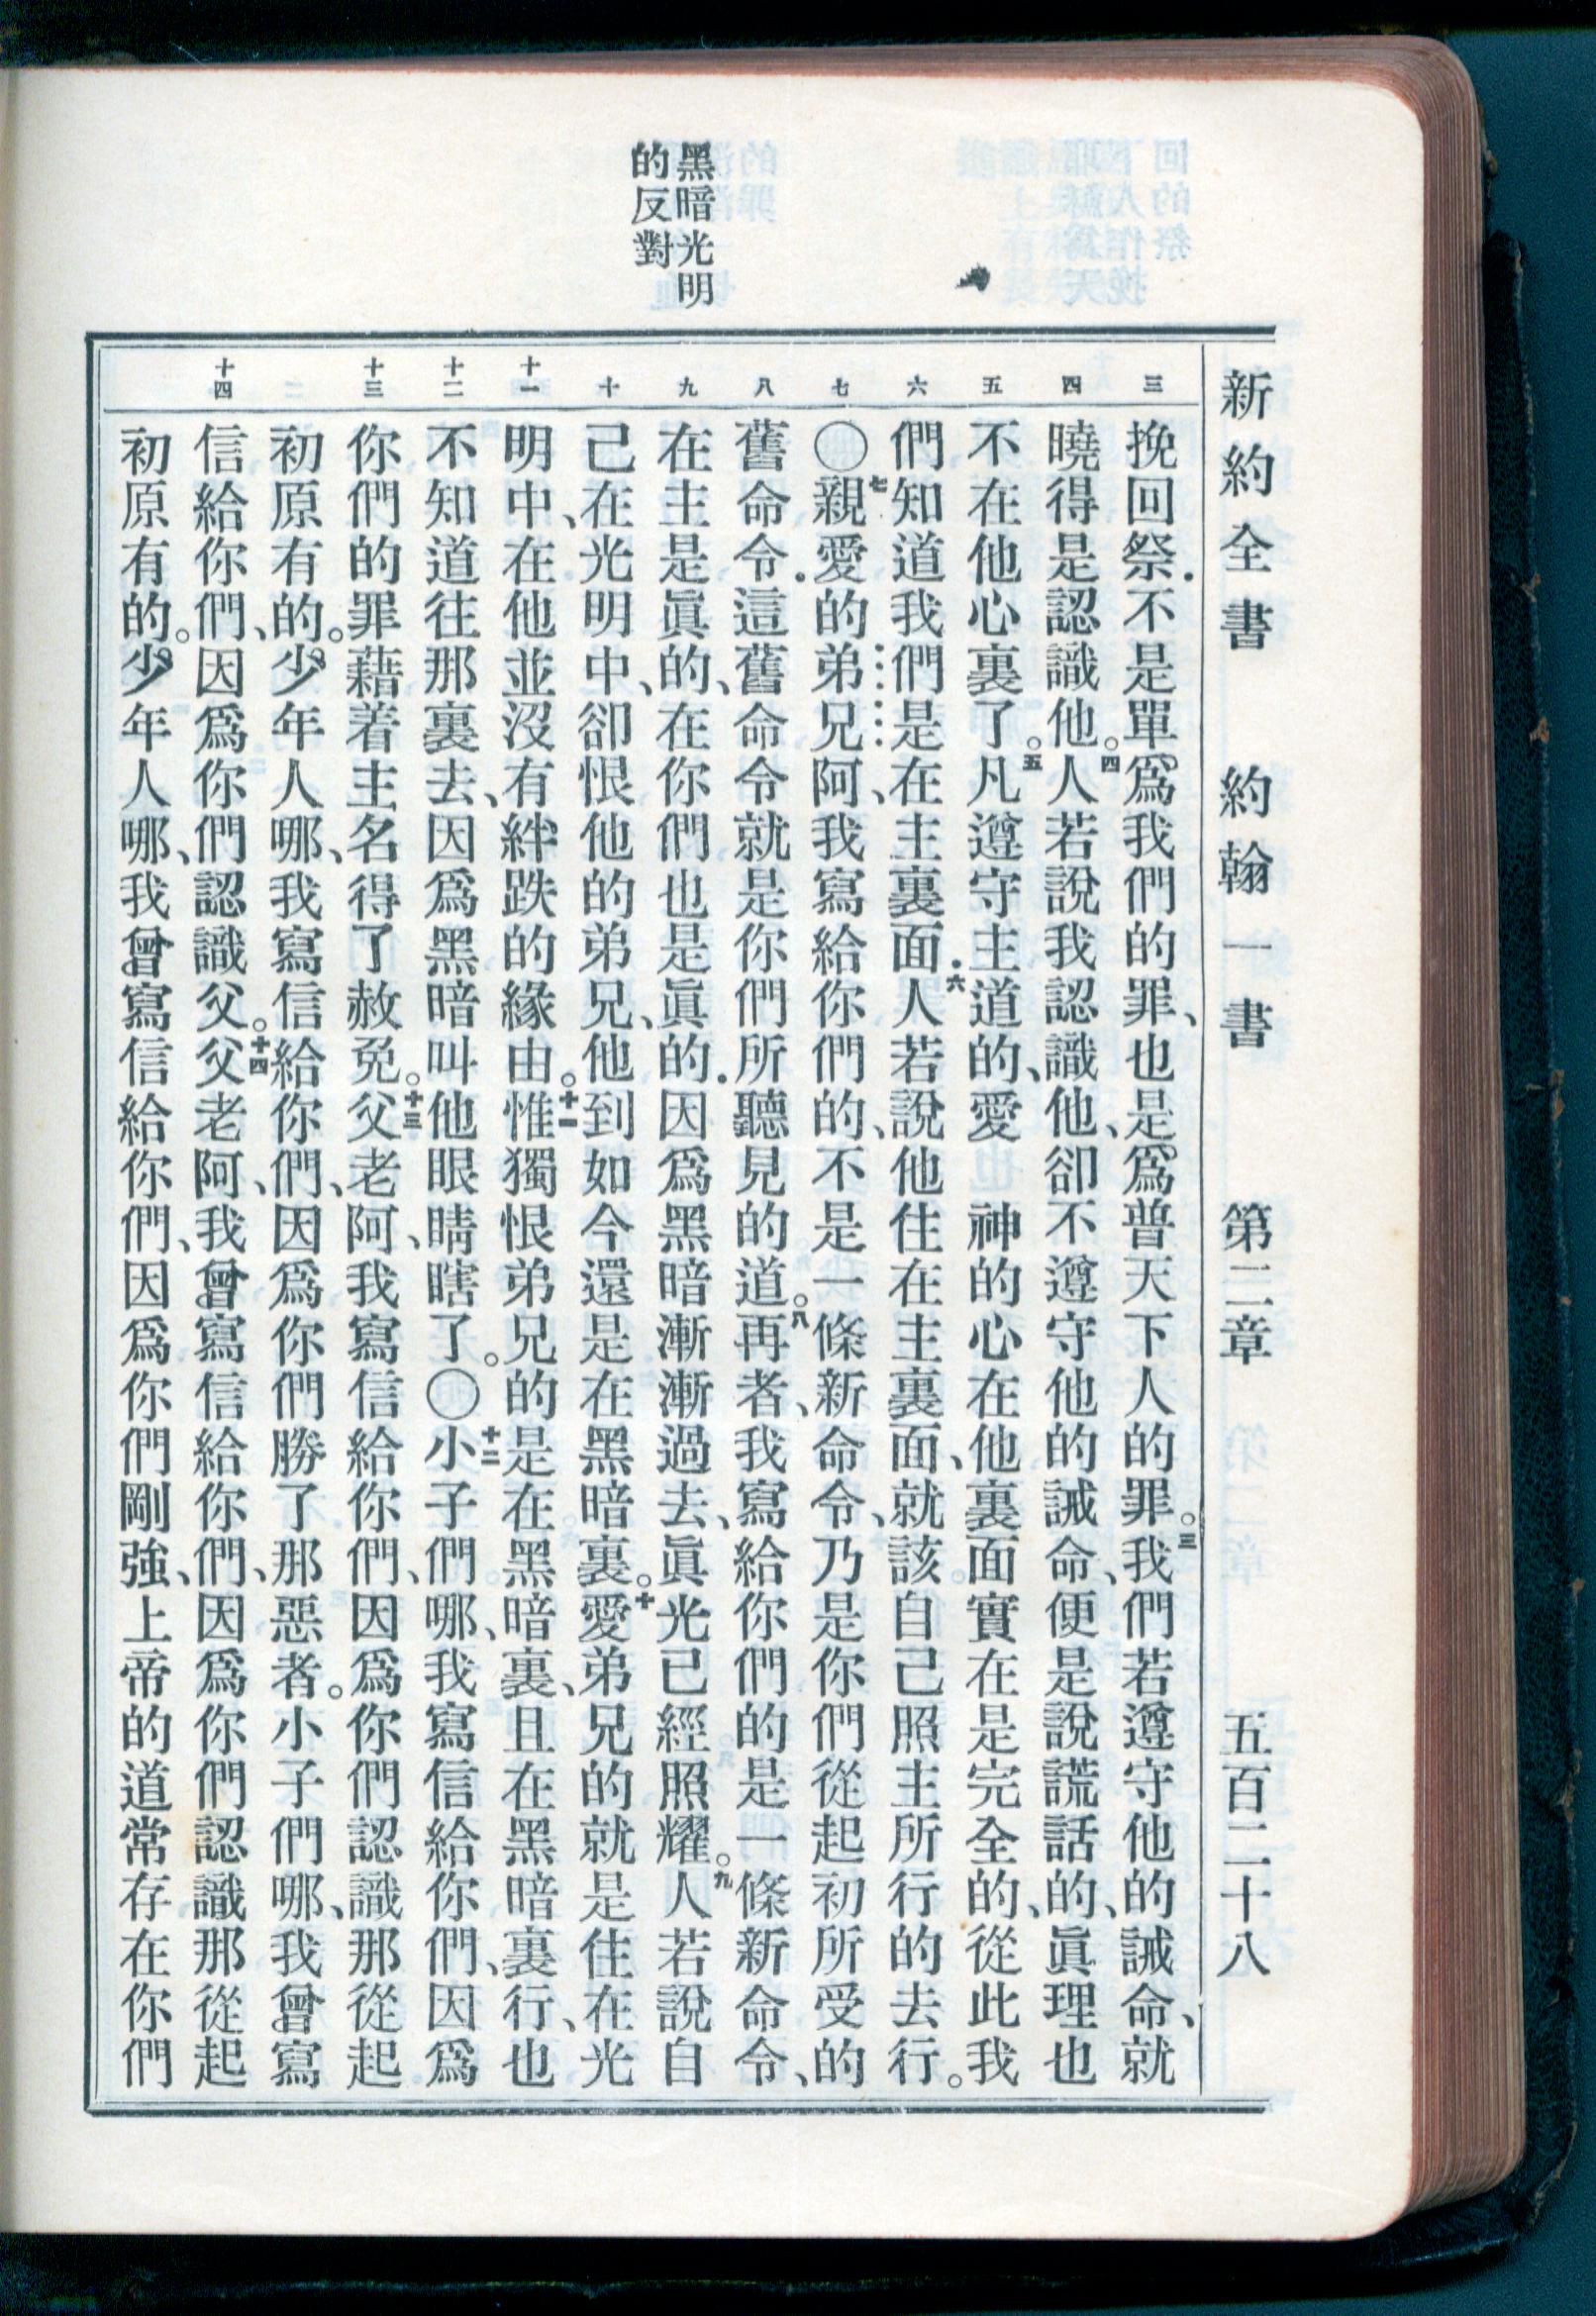 新約全書 約翰一書 第二章 五百二十八
黑暗光明
的反對
三 四 五 六 七 八 九 十 十一 十二 十三 十四
挽回祭．不是單爲我們的罪、也是爲普天下人的罪。三我們若遵守他的誡命、就
曉得是認識他。四人若說我認識他、卻不遵守他的誡命、便是說謊話的、眞理也
不在他心裏了。五凡遵守主道的、愛 神的心在他裏面實在是完全的、從此我
們知道我們是在主裏面．六人若說他住在主裏面、就該自己照主所行的去行。
〇七親愛的弟兄阿、我寫給你們的、不是一條新命令、乃是你們從起初所受的
舊命令．這舊命令就是你們所聽見的道。八再者、我寫給你們的是一條新命令、
在主是眞的、在你們也是眞的．因爲黑暗漸漸過去、眞光已經照耀。九人若說自
己在光明中、卻恨他的弟兄、他到如今還是在黑暗裏。十愛弟兄的就是住在光
明中、在他並沒有絆跌的緣由。十一惟獨恨弟兄的是在黑暗裏、且在黑暗裏行、也
不知道往那裏去、因爲黑暗叫他眼睛瞎了。〇十二小子們哪、我寫信給你們、因爲
你們的罪藉着主名得了赦免。十三父老阿、我寫信給你們、因爲你們認識那從起
初原有的。少年人哪、我寫信給你們、因爲你們勝了那惡者。小子們哪、我曾寫
信給你們、因爲你們認識父。十四父老阿、我曾寫信給你們、因爲你們認識那從起
初原有的。少年人哪、我曾寫信給你們、因爲你們剛強、上帝的道常存在你們